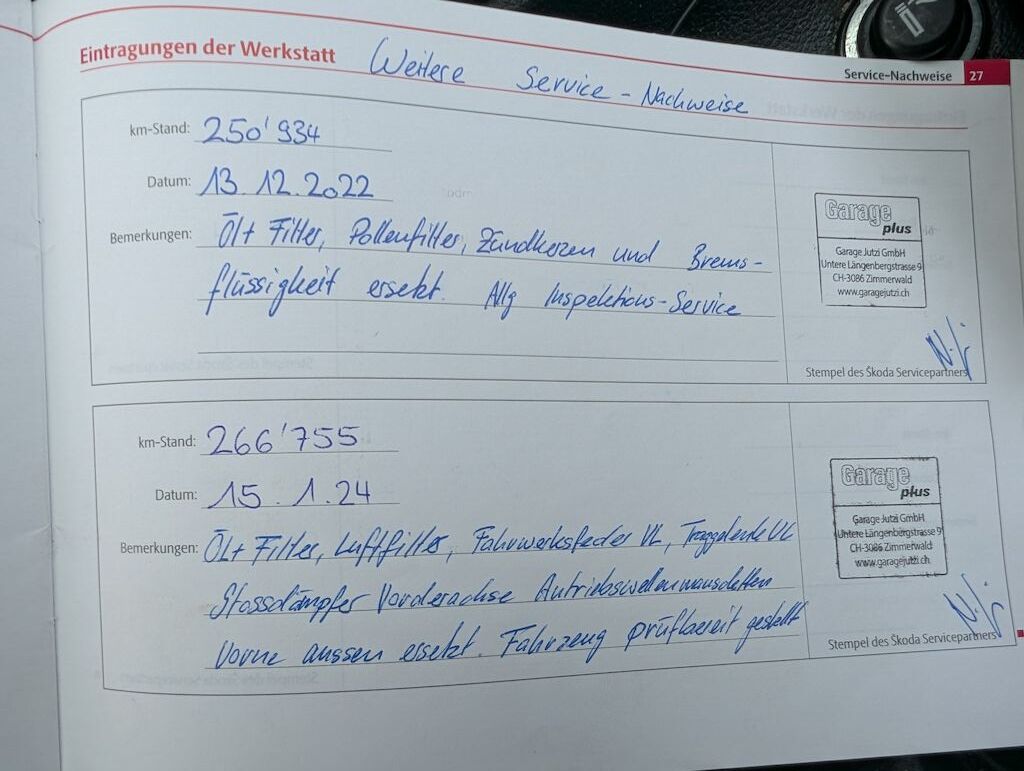 Eintragungen der Werkstatt Weitere Service - Nachweise
Service-Nachweise 27
km-Stand: 250'934
Datum: 13.12.2022
Bemerkungen: Öl+ Filter, Pollenfilter, Zündkerzen und Brems-
flüssigkeit ersetzt. Allg Inspektions-Service
Garage
plus
Garage Jutzi GmbH
Untere Längenbergstrasse 9
CH-3086 Zimmerwald
www.garagejutzi.ch
Stempel des Škoda Servicepartners
km-Stand: 266'755
Datum: 15.1.24
Bemerkungen: Öl+ Filter, Luftfilter, Fahrwerksfeder VL, Traggelenke VL
Stossdämpfer Vorderachse Antriebswellenmanschetten
Vorne aussen ersetzt. Fahrzeug prüfbereit gestellt
Garage
plus
Garage Jutzi GmbH
Untere Längenbergstrasse 9
CH-3086 Zimmerwald
www.garagejutzi.ch
Stempel des Škoda Servicepartners